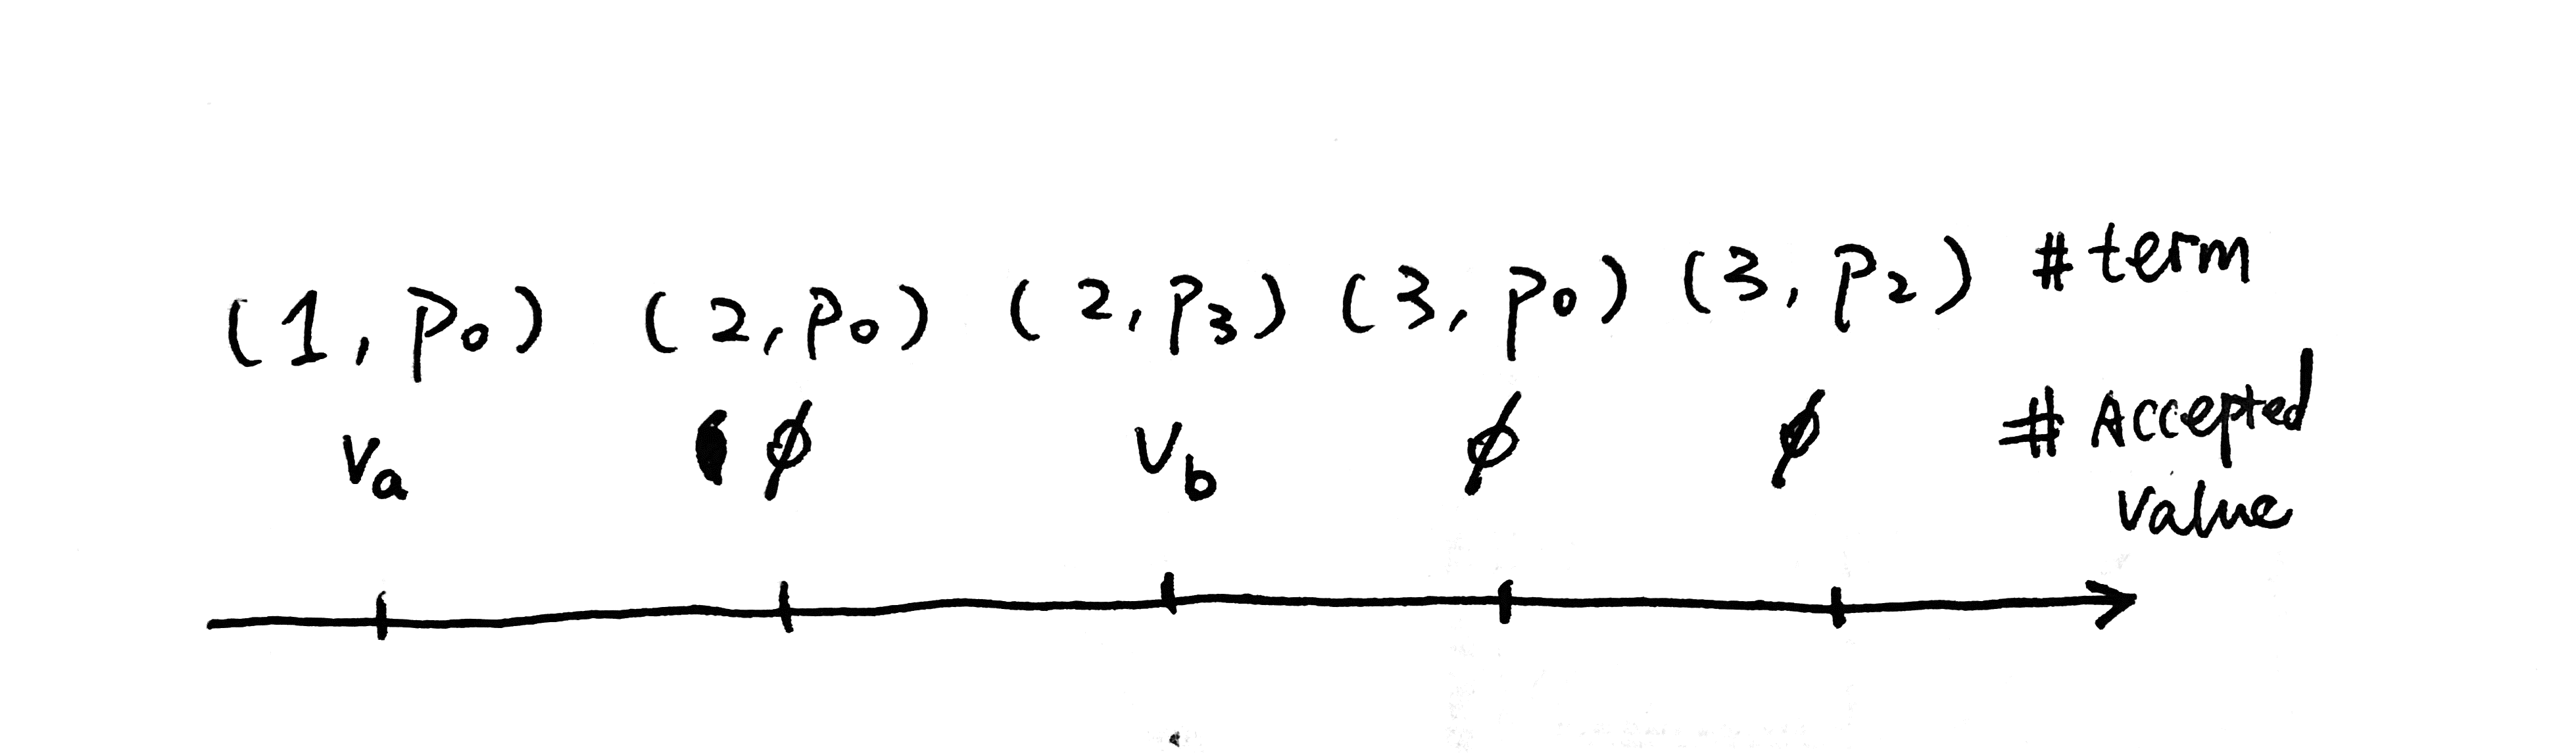 (1, p₀) (2, p₀) (2, p₃) (3, p₀) (3, p₂) # term
vₐ ϕ v_b ϕ ϕ # Accepted
value